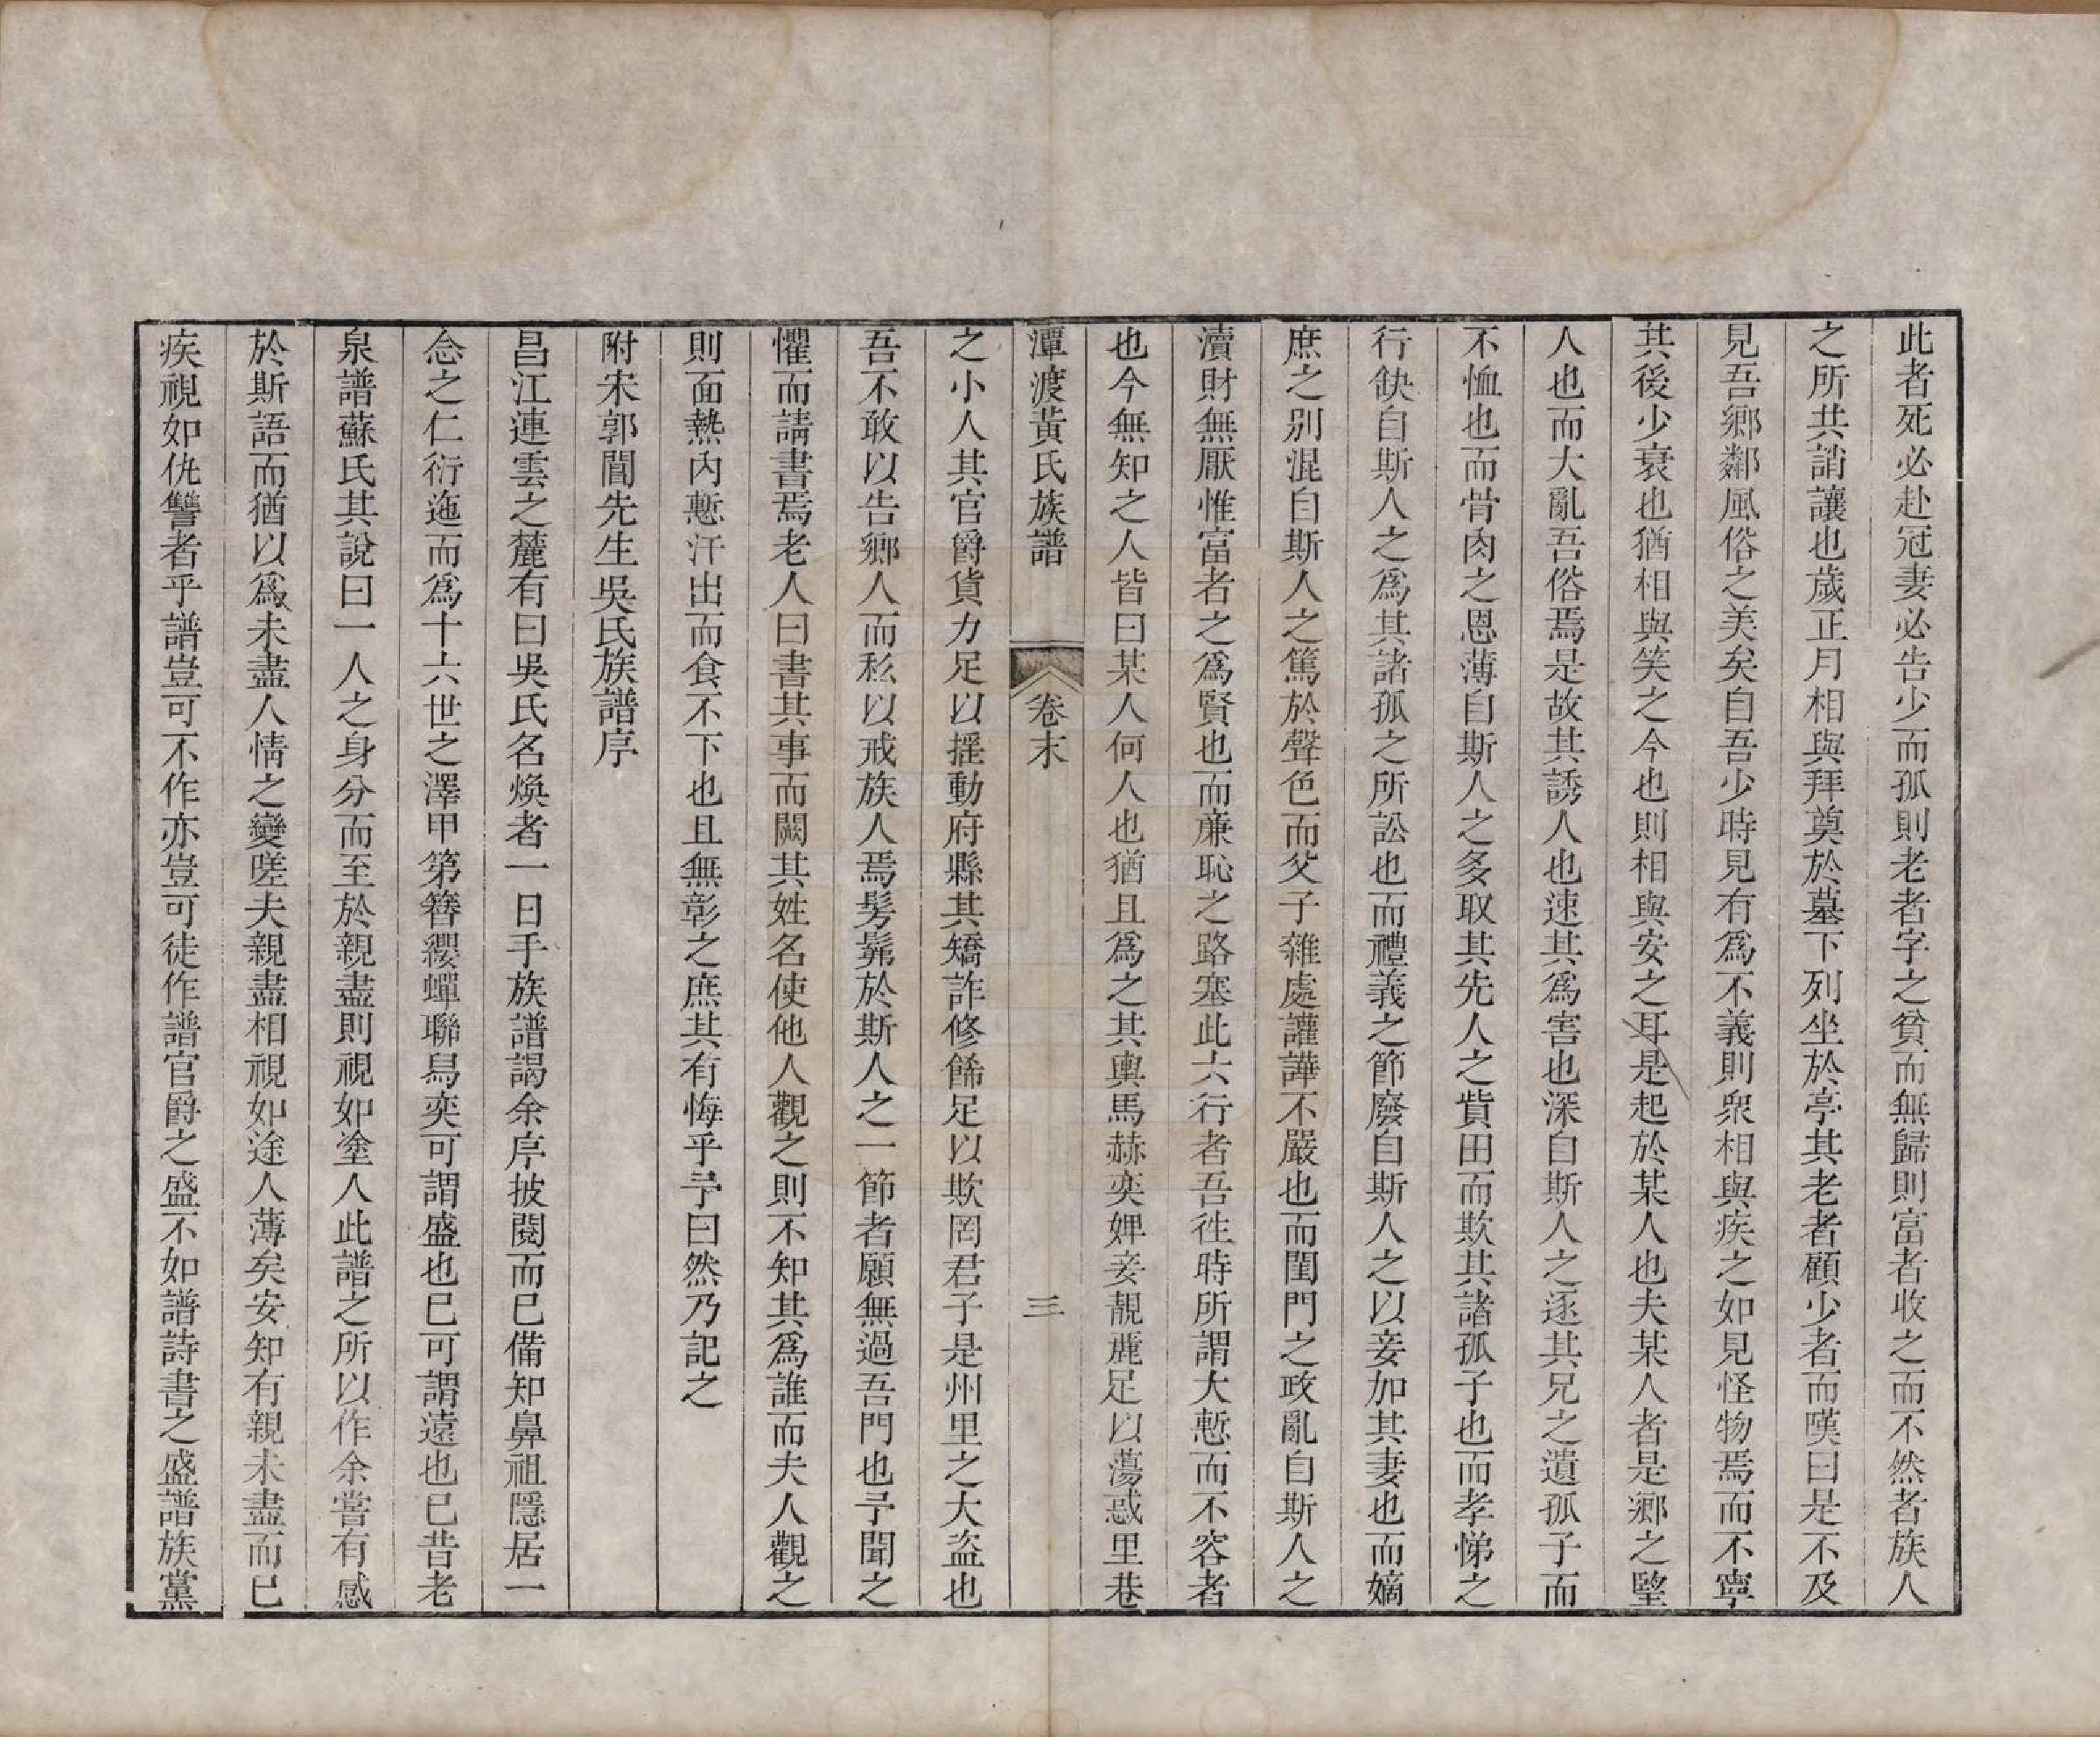 此者死必赴冠妻必告少而孤則老者字之貧而無歸則富者收之而不然者族人
之所共誚讓也歲正月相與拜奠於墓下列坐於亭其老者顧少者而嘆曰是不及
見吾鄉鄰風俗之美矣自吾少時見有爲不義則衆相與疾之如見怪物焉而不寧
其後少衰也猶相與笑之今也則相與安之耳是起於某人也夫某人者是鄉之望
人也而大亂吾俗焉是故其誘人也速其爲害也深自斯人之逐其兄之遺孤子而
不恤也而骨肉之恩薄自斯人之多取其先人之貲田而欺其諸孤子也而孝悌之
行缺自斯人之爲其諸孤之所訟也而禮義之節廢自斯人之以妾加其妻也而嫡
庶之別混自斯人之篤於聲色而父子雜處讙譁不嚴也而閨門之政亂自斯人之
瀆財無厭惟富者之爲賢也而廉恥之路塞此六行者吾徃時所謂大慙而不容者
也今無知之人皆曰某人何人也猶且爲之其輿馬赫奕婢妾靚麗足以蕩惑里巷
潭渡黃氏族譜 卷末 三
之小人其官爵貨力足以搖動府縣其矯詐修餙足以欺罔君子是州里之大盜也
吾不敢以告鄉人而私以戒族人焉髣髴於斯人之一節者願無過吾門也予聞之
懼而請書焉老人曰書其事而闕其姓名使他人觀之則不知其爲誰而夫人觀之
則面熱內慙汗出而食不下也且無彰之庶其有悔乎予曰然乃記之
附宋郭閶先生吳氏族譜序
昌江連雲之麓有曰吳氏名煥者一日手族譜謁余序披閱而已備知鼻祖隱居一
念之仁衍迤而爲十六世之澤甲第簪纓蟬聯舄奕可謂盛也已可謂遠也已昔老
泉譜蘇氏其說曰一人之身分而至於親盡則視如塗人此譜之所以作余嘗有感
於斯語而猶以爲未盡人情之變嗟夫親盡相視如途人薄矣安知有親未盡而已
疾視如仇讐者乎譜豈可不作亦豈可徒作譜官爵之盛不如譜詩書之盛譜族黨